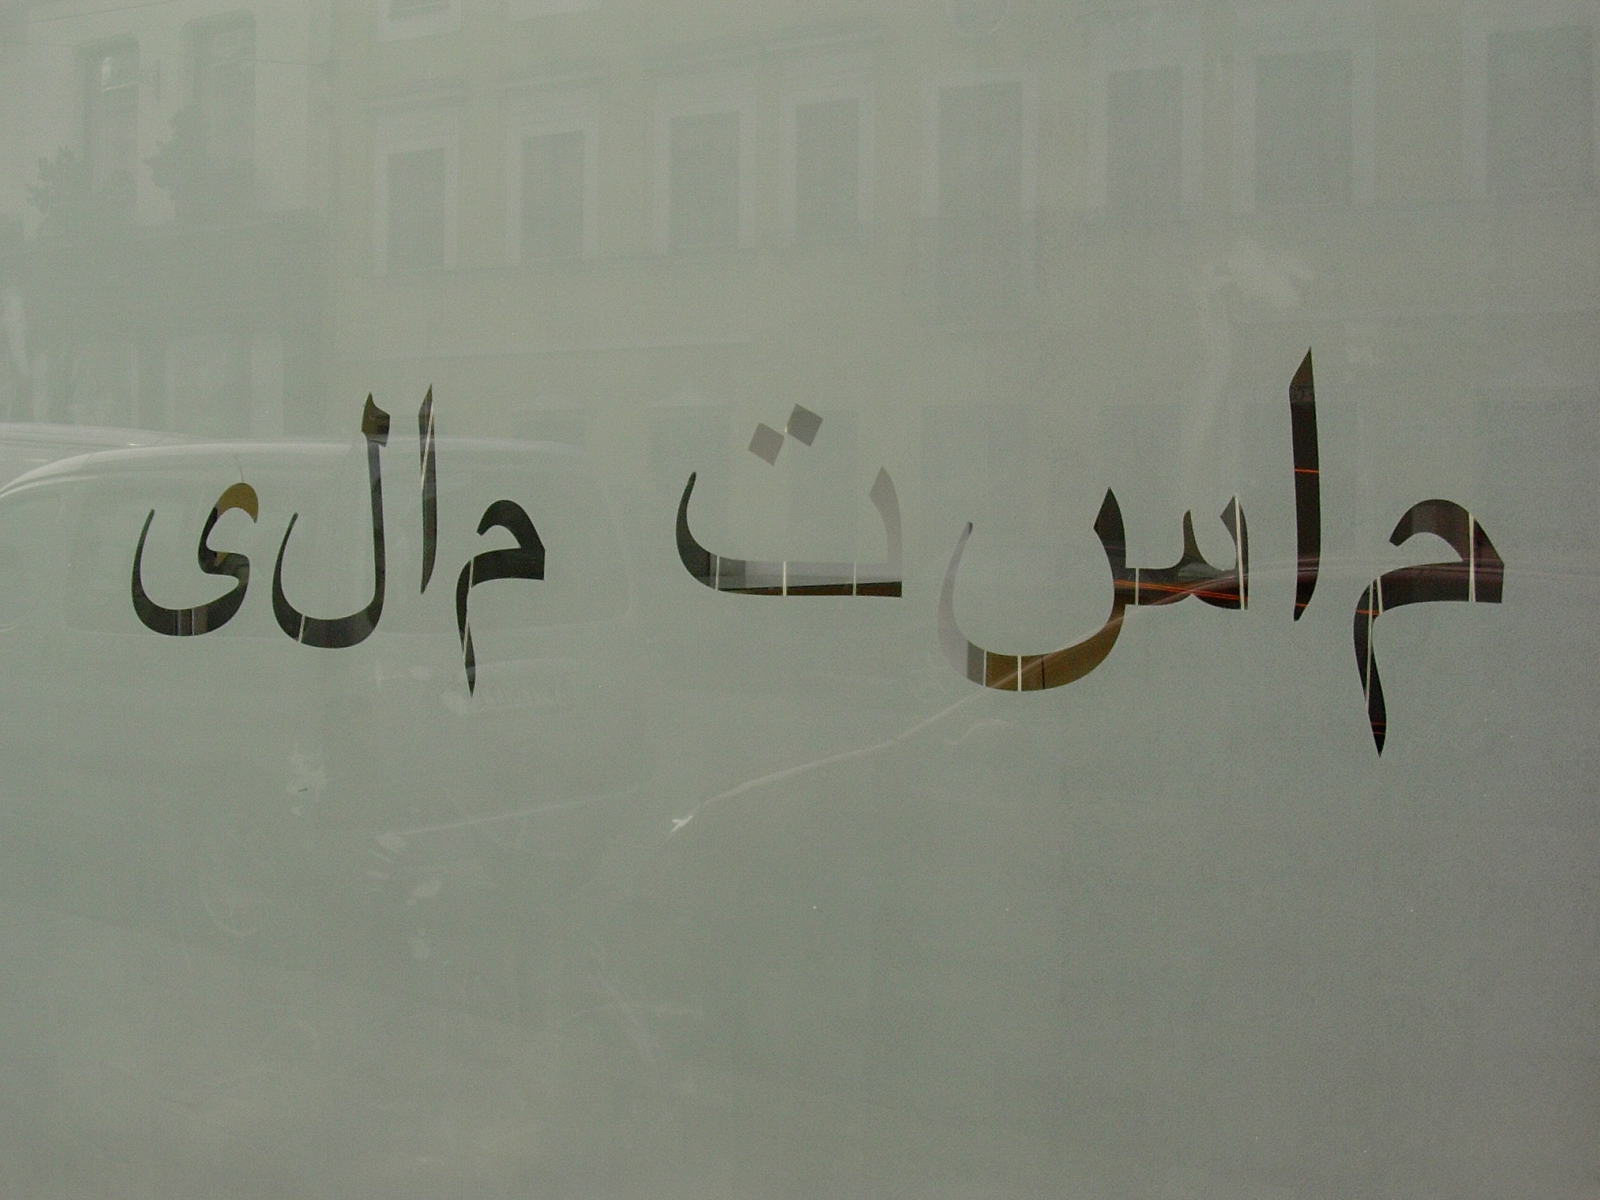 ماست مالی